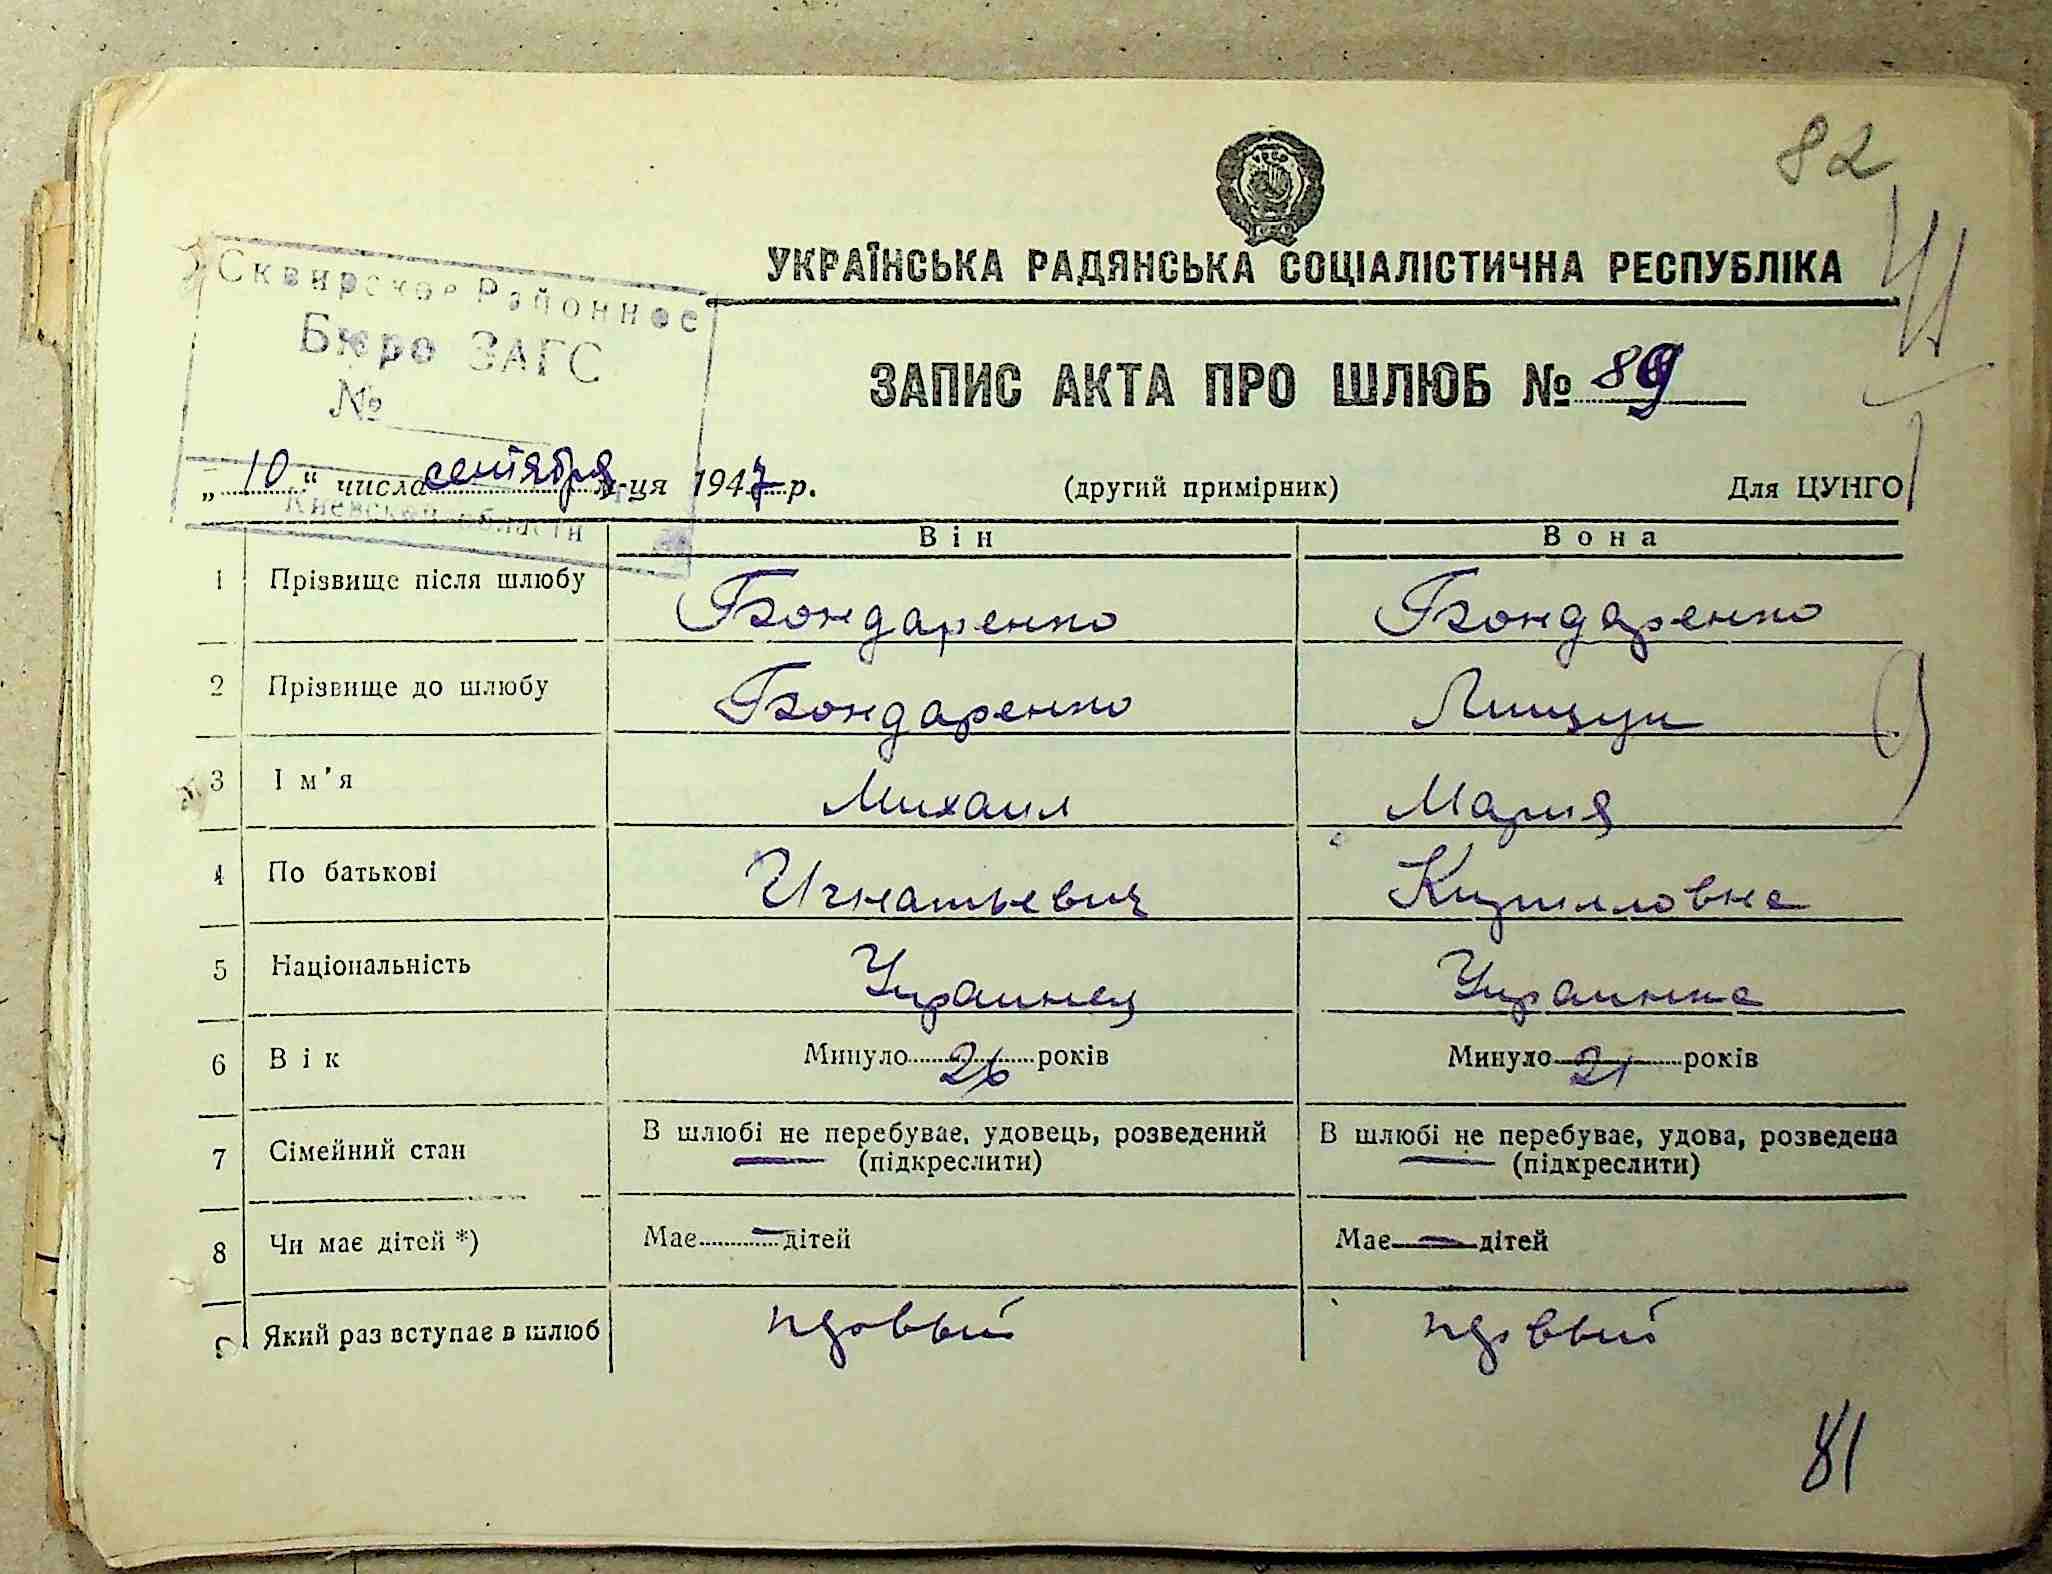 82
41
УКРАЇНСЬКА РАДЯНСЬКА СОЦІАЛІСТИЧНА РЕСПУБЛІКА
Сквирское Районное
Бюро ЗАГС
№
Киевской области
ЗАПИС АКТА ПРО ШЛЮБ № 89
„ 10 “ числа сентября м-ця 1947 р. (другий примірник) Для ЦУНГО
Він Вона
1 Прізвище після шлюбу Бондаренко Бондаренко
2 Прізвище до шлюбу Бондаренко Лищук
3 Ім'я Михаил Мария
4 По батькові Игнатьевич Кирилловна
5 Національність Украинец Украинка
6 Вік Минуло 26 років Минуло 21 років
7 Сімейний стан В шлюбі не перебуває, удовець, розведений В шлюбі не перебуває, удова, розведена
(підкреслити) (підкреслити)
8 Чи має дітей *) Має — дітей Має — дітей
9 Який раз вступає в шлюб первый первый
81